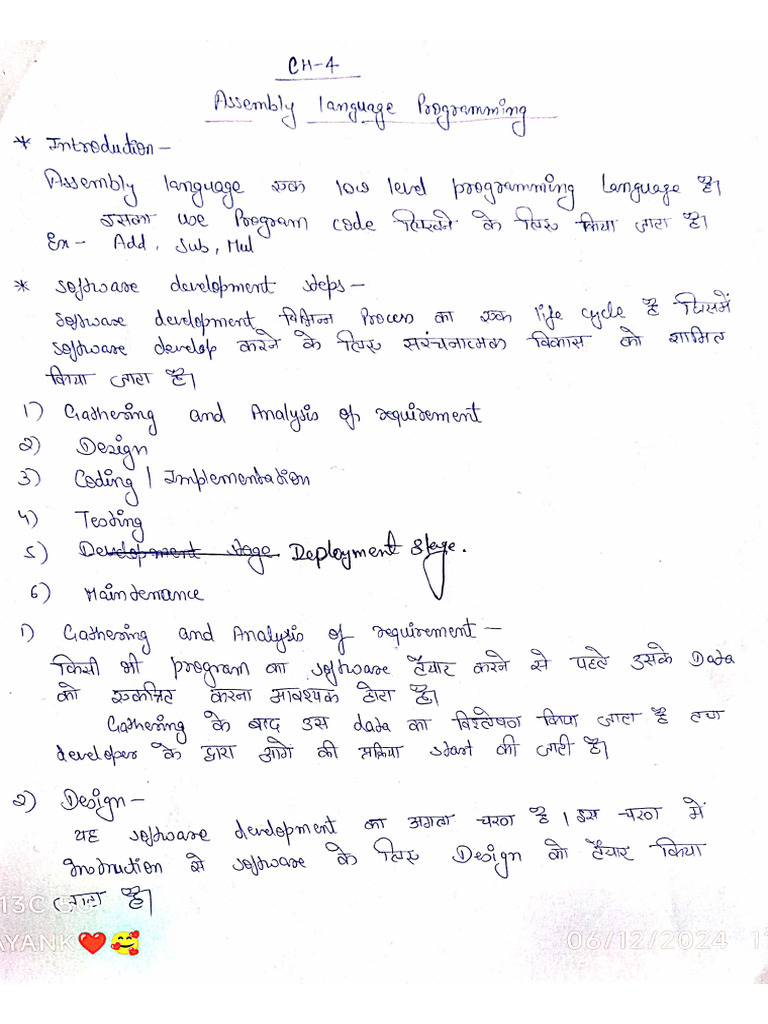 CH-4
Assembly language Programming
* Introduction -
Assembly language एक low level programming language है।
इसका use Program code लिखने के लिए किया जाता है।
Ex- Add, Sub, Mul
* Software development steps -
Software development विभिन्न Process का एक life cycle है जिसमें
software develop करने के लिए सरंचनात्मक विकास को शामिल
किया जाता है।
1) Gathering and Analysis of requirement
2) Design
3) Coding / Implementation
4) Testing
5) Development stage Deployment Stage.
6) Maintenance
1) Gathering and Analysis of requirement -
किसी भी program का software तैयार करने से पहले उसके Data
को एकत्रित करना आवश्यक होता है।
Gathering के बाद उस data का विश्लेषण किया जाता है तथा
developer के द्वारा आगे की प्रक्रिया start की जाती है।
2) Design -
यह software development का अगला चरण है। इस चरण में
Instruction से software के लिए Design को तैयार किया
जाता है।
13C 5G
AYANK❤️🥰
06/12/2024 1